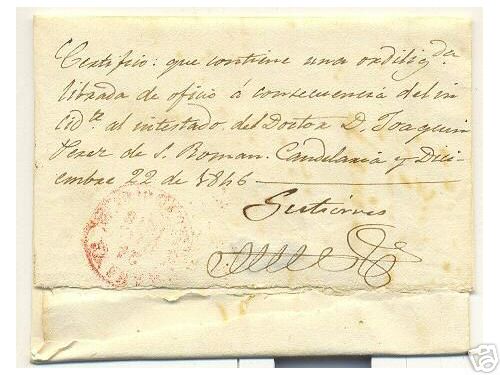 Certifico: que contiene una ordilig.da
librada de oficio á consecuencia del in
cid.te al intestado del Doctor D. Joaquin
de S. Roman. Candelaria y Dici
embre 22 de 1846
Gutierres